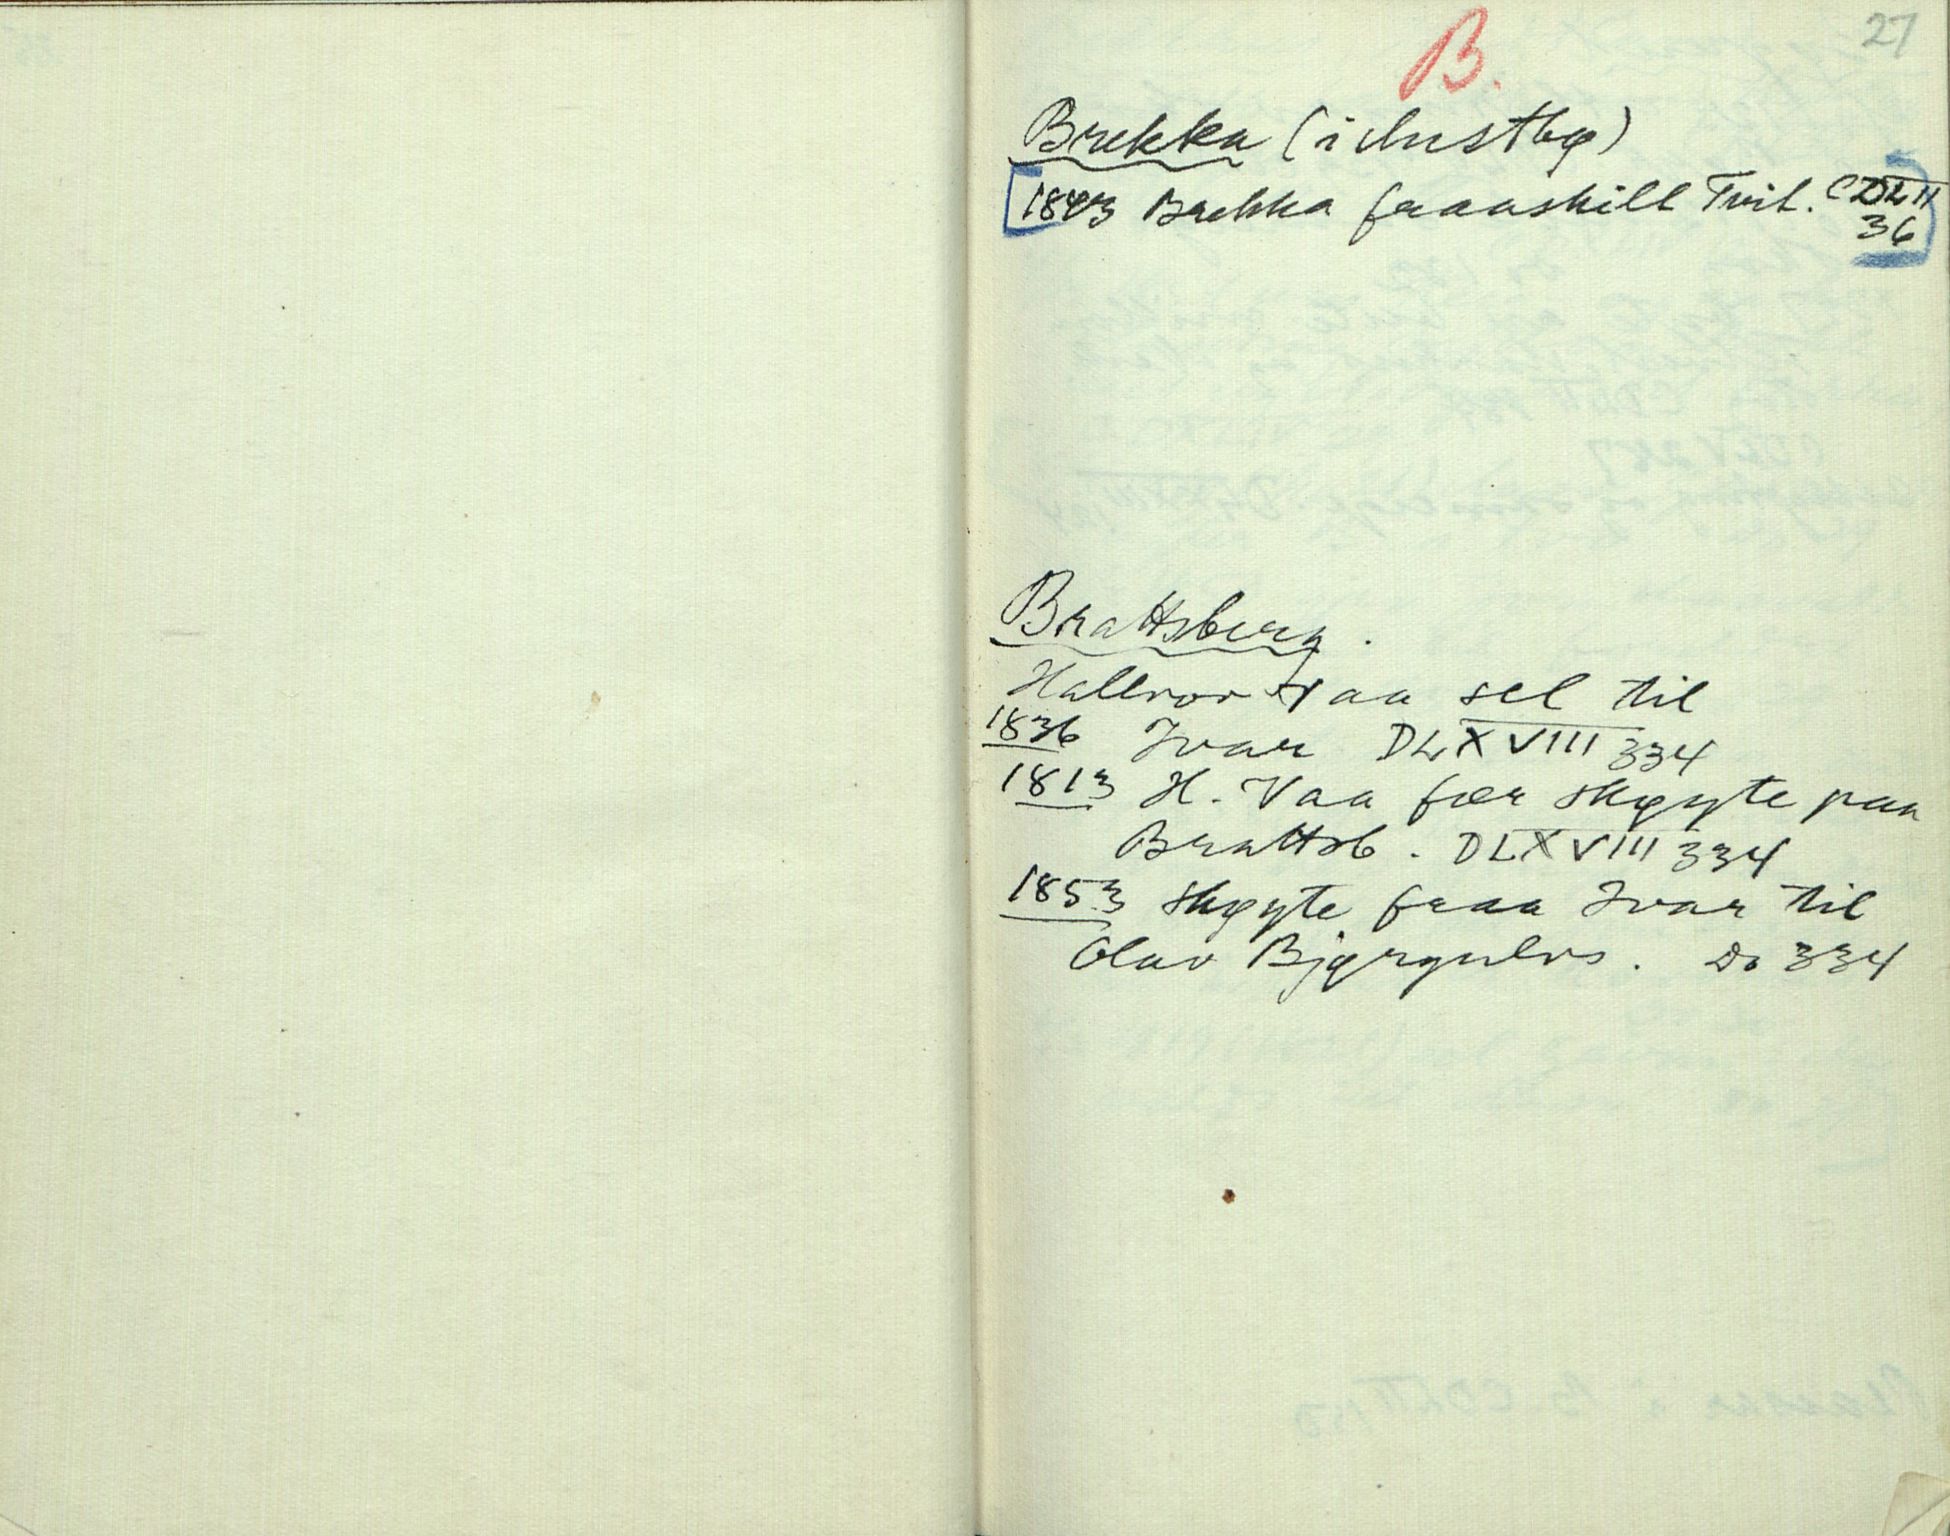 27
B.
Brekka (i Austbø)
1843 Brekka fraaskilt Tvit. CDLII
36
Brattsberg.
Hallvor Vaa sel til
1836 Ivar DLXVIII 334
1813 H. Vaa fær skøyte paa
Brattsb. DLXVIII 334
1853 skøyte fraa Ivar til
Olav Bjørgulvs. Do 334